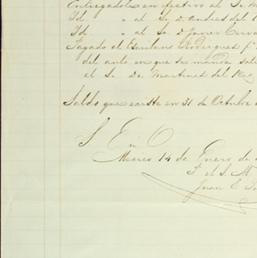 Entregado en efectivo al Sr M
Id " al Sr Dn Andres del
Id " al Sr Dn Javier Cerva
Pagado el Escribano Rodriguez pr
del auto en que se manda
al Sr Dn Martinez del Rio
Saldo que existe en 31 de Octubre
S. E. u O.
Mexico 14 de Enero de
P. el S. M
Juan E.